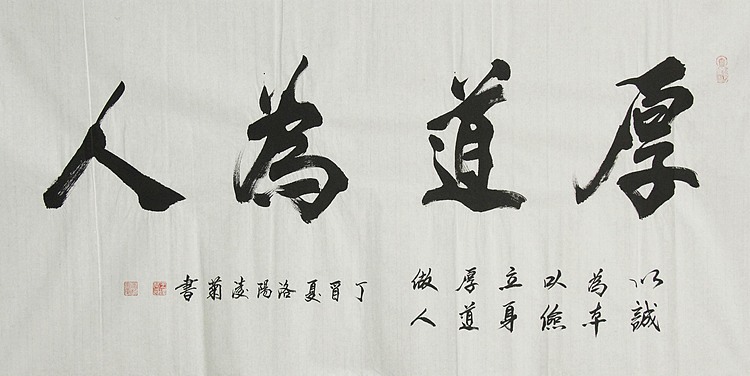 厚道為人
以誠
為本
以儉
立身
厚道
做人
丁酉夏洛陽菊書